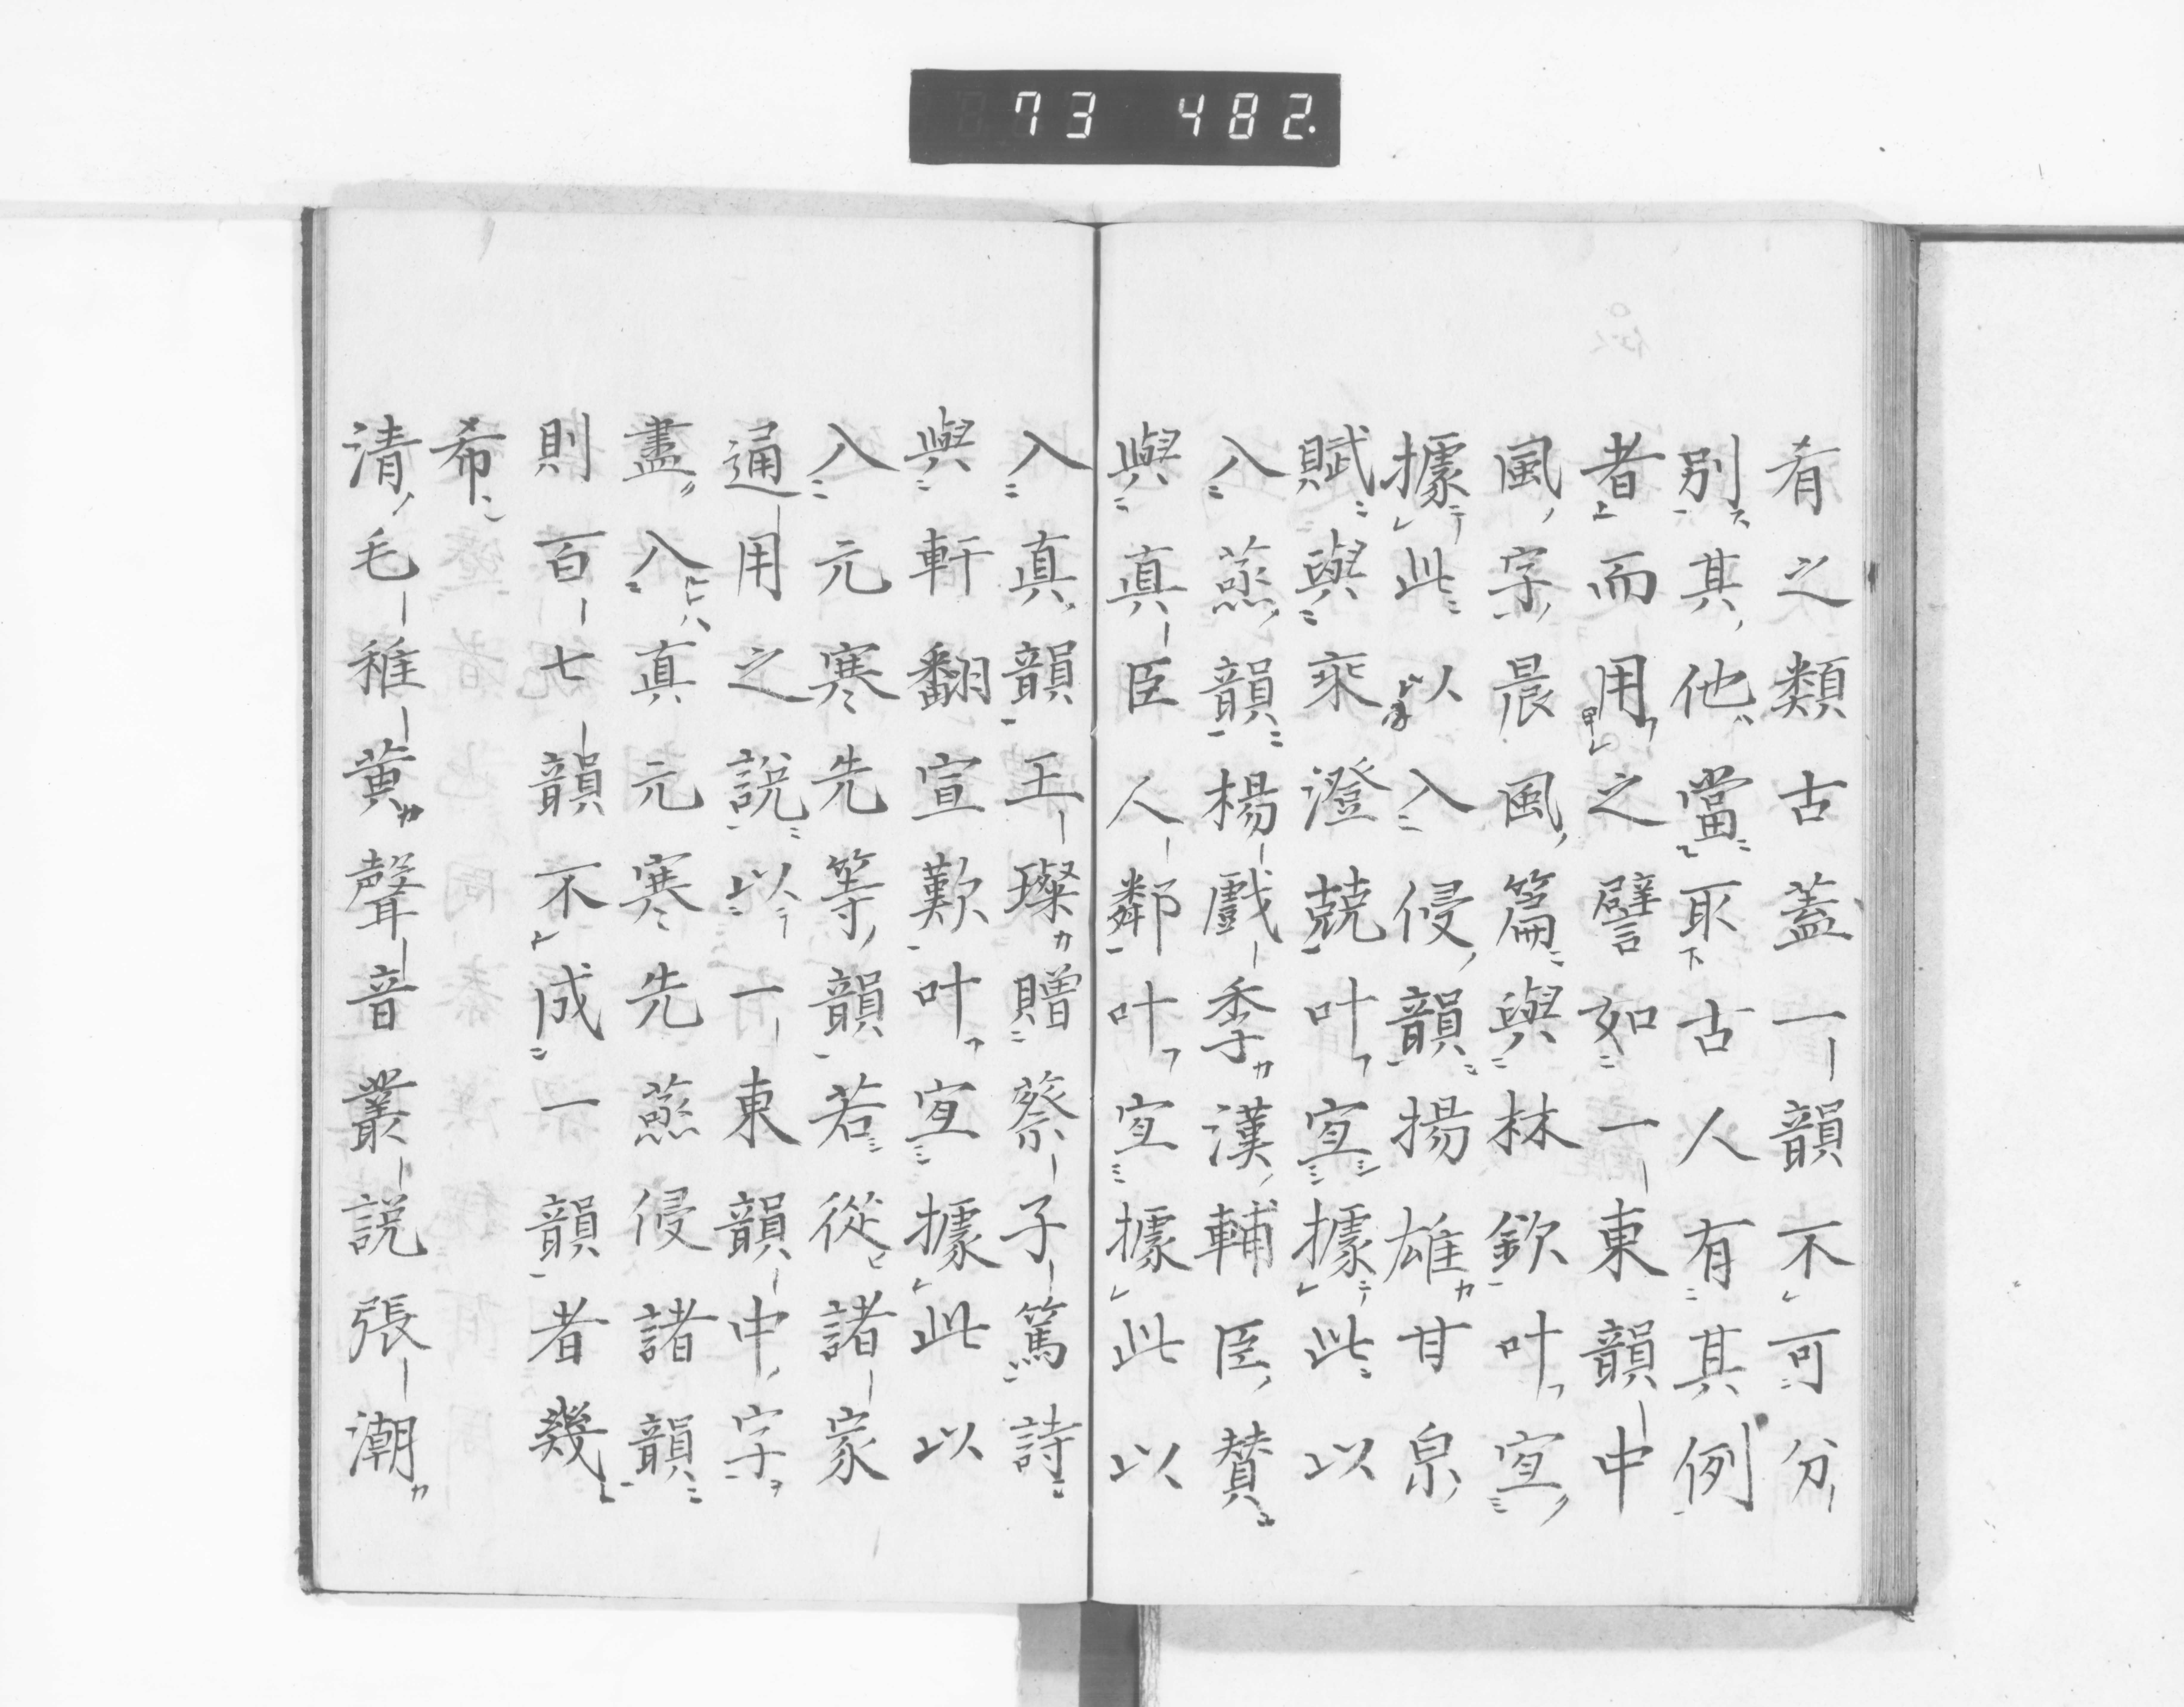 73 482.
有之類古蓋一韻不可分
別其他當取古人有其例
者而用之譬如一東韻中
風字晨風篇與林欽叶宜
據此以入侵韻揚雄甘泉
賦與乘澄兢叶宜據此以
入蒸韻楊戲季漢輔臣贊
與真臣人鄰叶宜據此以
入真韻王璨贈蔡子篤詩
與軒翻宣歎叶宜據此以
入元寒先等韻若從諸家
通用之說以一東韻中字
盡入真元寒先蒸侵諸韻
則百七韻不成一韻者幾
希
清毛稚黄聲音叢説張潮